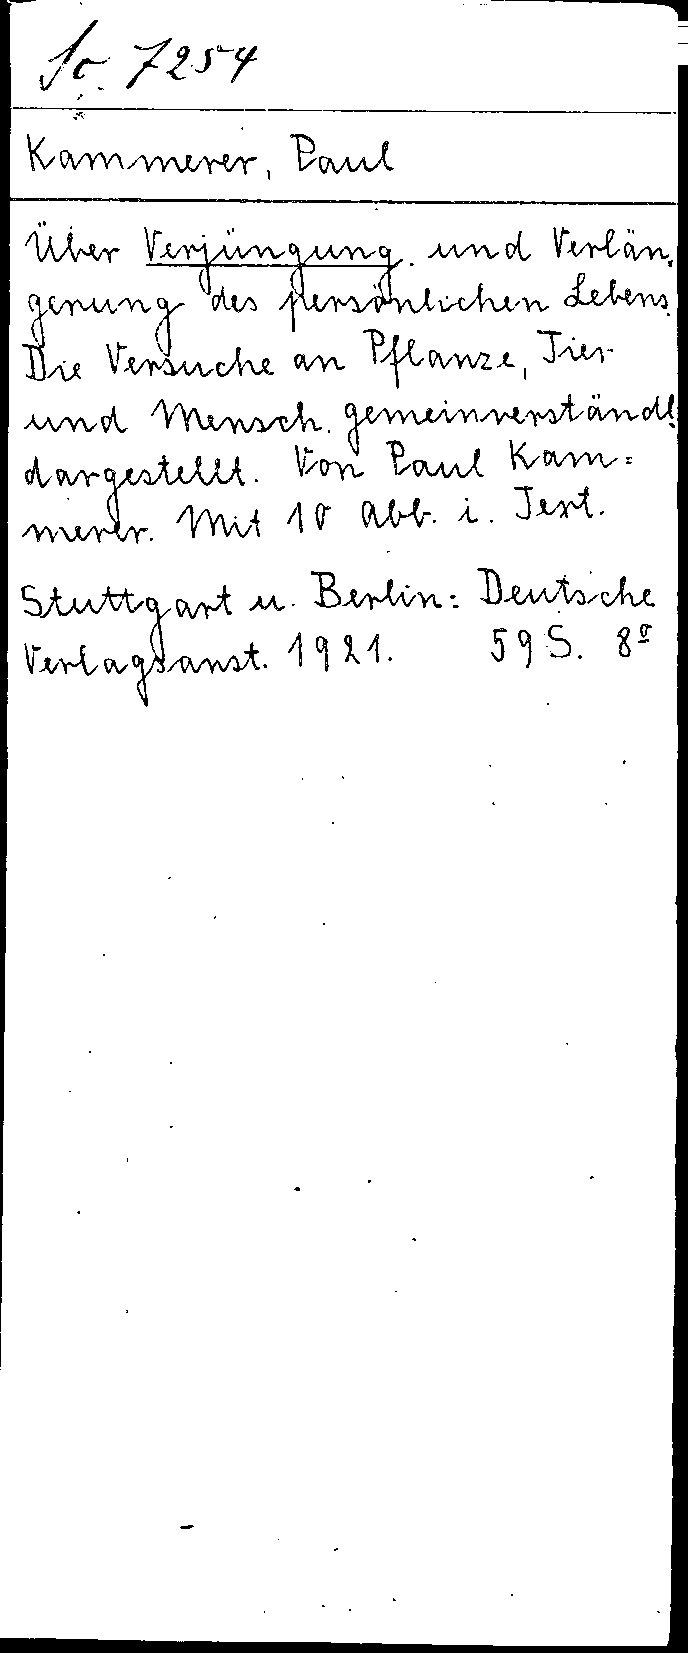 Sc. 7254
Kammerer, Paul
Über Verjüngung und Verlän=
gerung des persönlichen Lebens.
Die Versuche an Pflanze, Tier
und Mensch. gemeinverständl.
dargestellt. Von Paul Kam=
merer. Mit 10 Abb. i. Text.
Stuttgart u. Berlin: Deutsche
Verlagsanst. 1921. 59 S. 8º